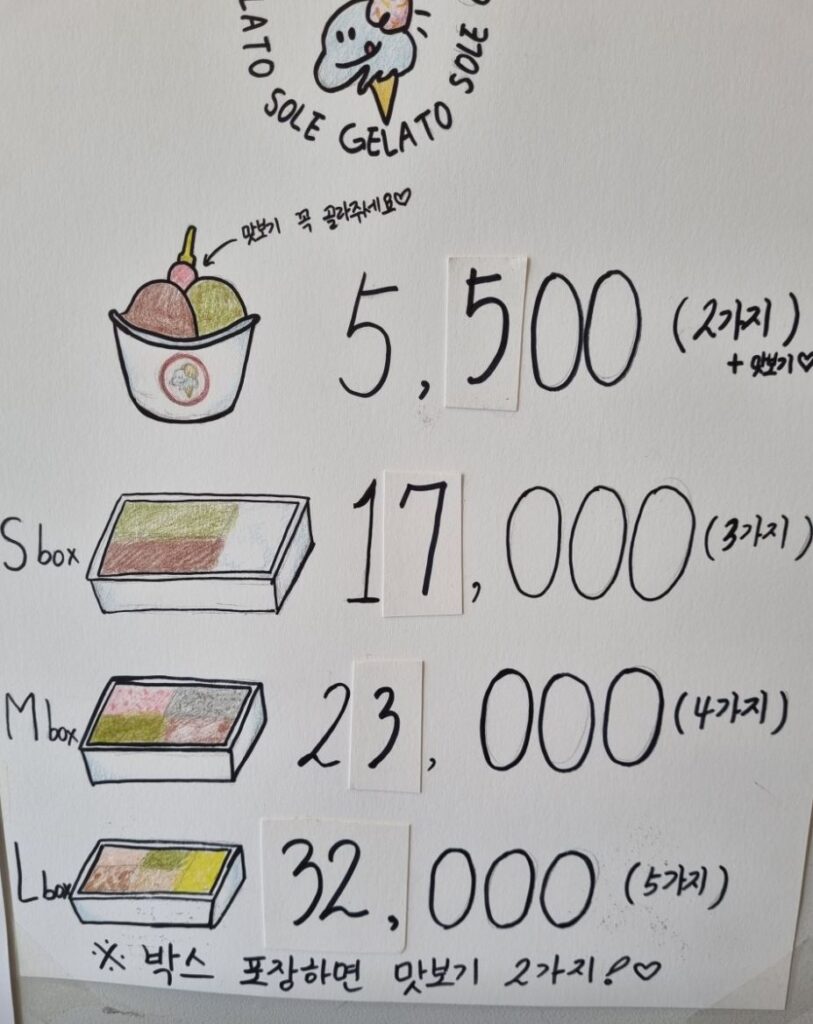 LATO SOLE GELATO SOLE
맛보기 꼭 골라주세요♡
5,500 (2가지)
+ 맛보기♡
S box 17,000 (3가지)
M box 23,000 (4가지)
L box 32,000 (5가지)
※ 박스 포장하면 맛보기 2가지!♡